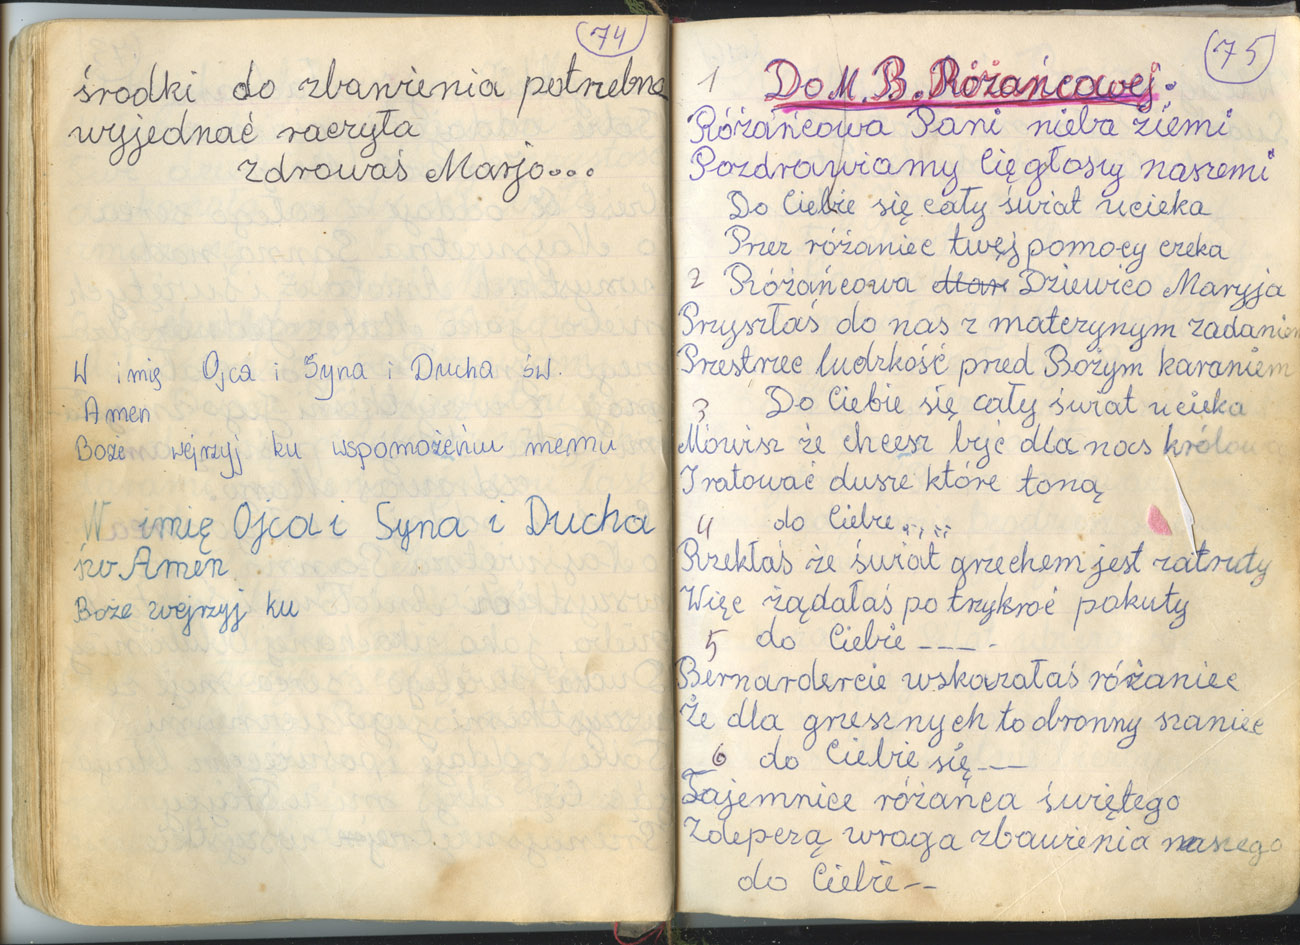 74
środki do zbawienia potrzebne
wyjednać raczyła
zdrowaś Marjo...
W imię Ojca i Syna i Ducha św
Amen
Boże wejrzyj ku wspomożeniu memu
W imię Ojca i Syna i Ducha
św Amen
Boże wejrzyj ku
75
1 Do M. B. Różańcowej.
Różańcowa Pani nieba ziemi
Pozdrawiamy Cię głosy naszemi
Do Ciebie się cały świat ucieka
Przez różaniec twej pomocy czeka
2 Różańcowa Dziewico Maryja
Przyszłaś do nas z matczynym zadaniem
Przestrzec ludzkość pred Bożym karaniem
3 Do Ciebie się cały świat ucieka
Mówisz że chcesz być dla nas królową
I ratować dusze które toną
4 do Ciebie......
Rzekłaś że świat grzechem jest zatruty
Więc żądałaś po trzykroć pokuty
5 do Ciebie ----.
Bernardercie wskazałaś różaniec
Że dla grzesznych to obronny szaniec
6 do Ciebie się --
Tajemnice różańca świętego
Zdepezą wroga zbawienia naszego
do Ciebie --